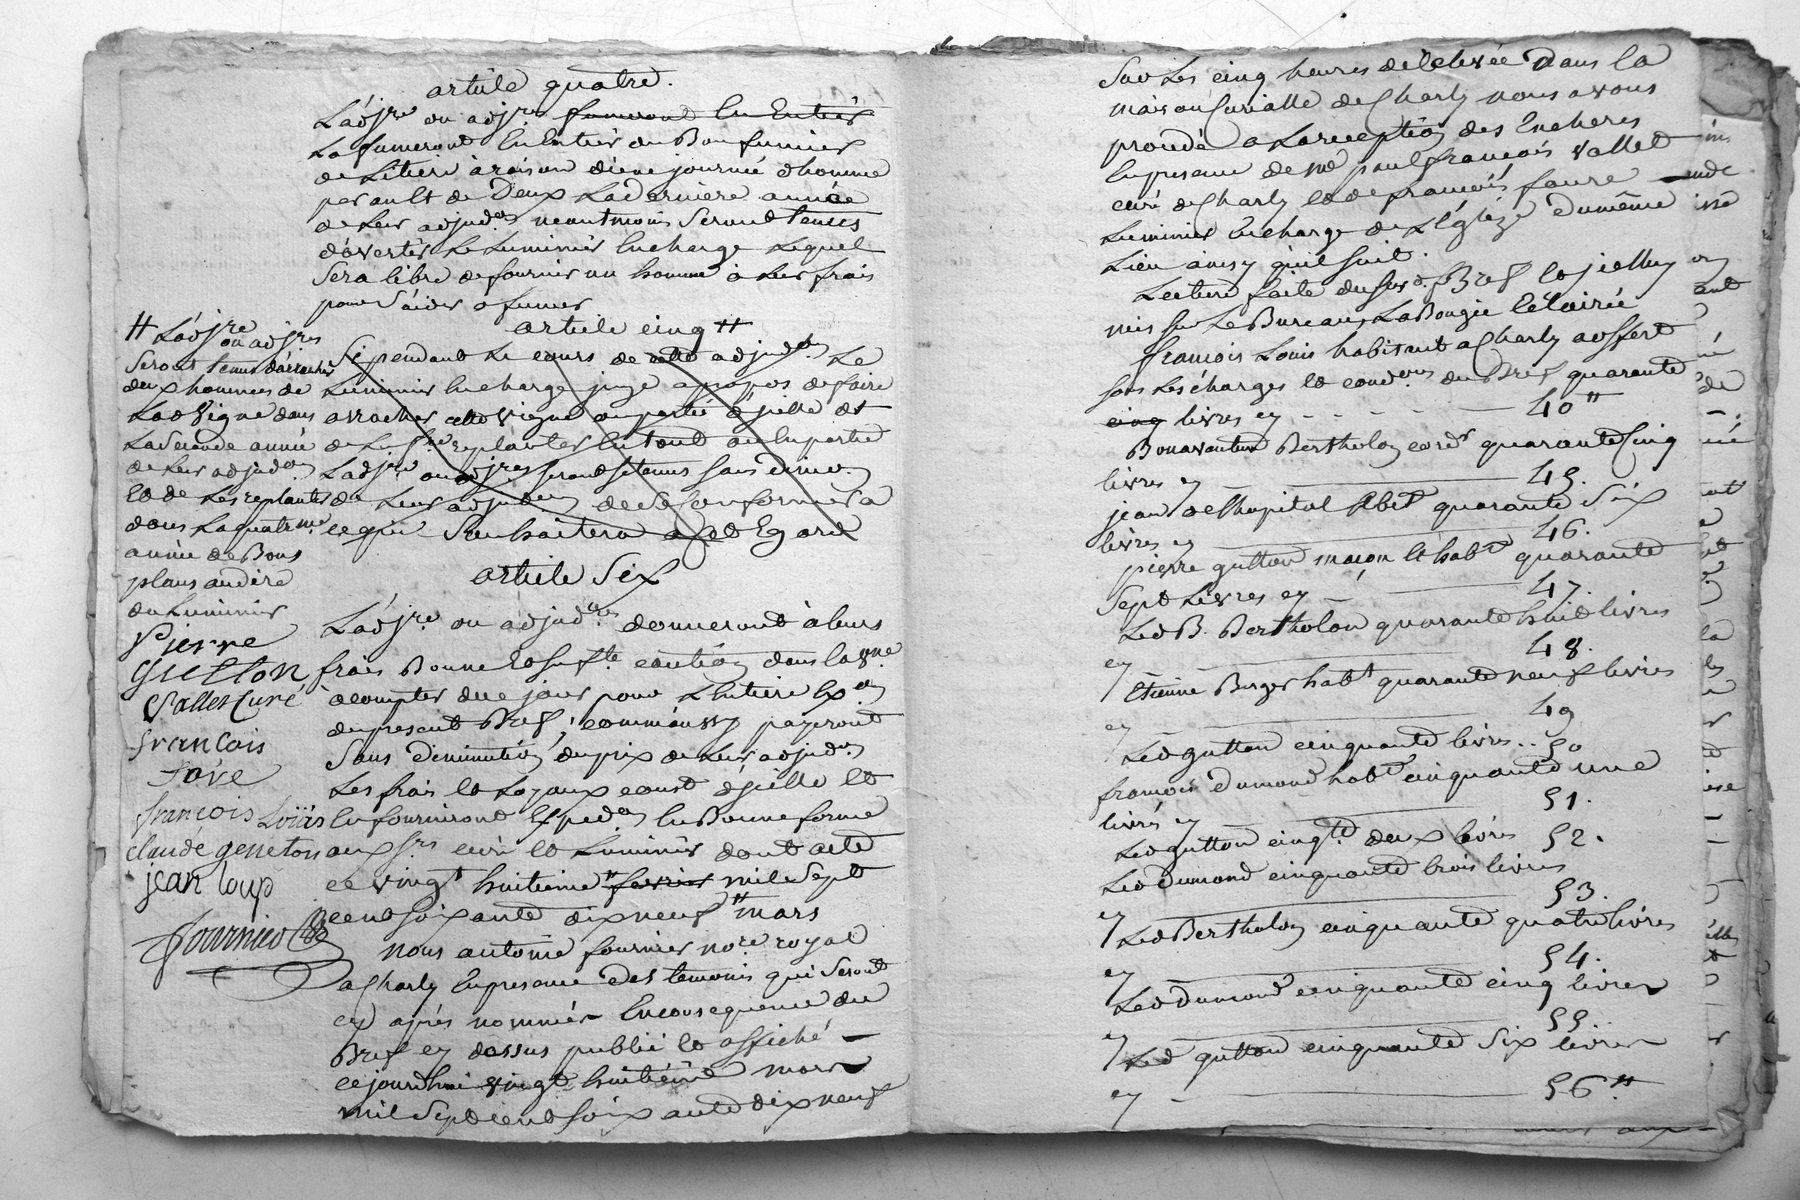 article quatre.
L'adjre ou adjres fumeront en Entier
La fumeront En Entier du Bon fumier
de Litiere à raison d'une journée d'homme
par an et de Deux La derniere année
de Leur adjudon neantmoins Seront tenus
d'avertir Le Luminier En charge Lequel
Sera libre de fournir un homme à Leur frais
pour S'aider a fumer
article cinq #
Si pendant Le cours de cette adjudon Le
Luminier En charge juge apropos de faire
arracher cette vigne ou partie d'jcelle et
de La fre replanter En tout ou En partie
L'adjre ou adjres Seront tenus Sans dimon
de Leur adjudon de Se Conformer a
ce qui Souhaitera a cet Egard
article Six
L'adjre ou adjudres donneront à leurs
frais Bonne et Sufte caution dans la 8ne
à compter de ce jour pour L'Entiere Exon
du present Bref, comme aussy payeront
Sans diminution du prix de Leur adjudon
Les frais et Loyaux coust d'jcelle et
En fourniront Expedon En Bonne forme
aux Srs curé et Luminier dont acte
ce vingt huitieme # fevrier mil Sept
cent Soixante dix neuf # mars
Nous antoine fournier nore royal
a Charly En presence Des temoins qui Seront
cy après nommés En consequence du
Bref cy dessus publié et affiché
ce jourdhui vingt huitiéme mars
mil Sept cent Soixante dix neuf
# L'adjre
ou adjres
Seront tenus d'arracher
deux hommes de
Lad vigne dans
La Seconde année
de Leur adjudon
et de Les replanter
dans La quatrme
année de Bons
plans au dire
du Luminier
Pierre
Gutton
Vallet Curé
francois
Favre
françois Loüis
claude geneton
jean loup
Fournier
Sur Les cinq heures de relevée Dans la
maison Curialle de Charly nous avons
procedé a La reception des Encheres
En presence de Me paul françois Vallet
curé de Charly et de françois faure
Luminier En charge de L'Eglize du même
Lieu ainsy qu'il Suit.
Lecture faite du Susd. Bref et jcelluy
mis Sur Le Bureau, La Bougie Eclairée
françois Louis habitant a Charly a offert
Sous Les charges et condons du Bref quarante
cinq livres cy 40 #
Bonaventure Bertholon cordr quarante Cinq
livres cy 45.
jean de L'hopital habt quarante Six
livres cy 46.
pierre gutton maçon et habt quarante
Sept Livres cy 47.
Led B. Bertholon quarante huit livres
cy 48.
Etienne Burger habt quarante neuf livres
cy 49
Led gutton cinquante livres.. 50
françois Dumond habt cinquante une
livres cy 51.
Led gutton cinqte deux livres 52.
Led Dumond cinquante trois livres
cy 53.
Led Bertholon cinquante quatre livres
cy 54.
Led Dumond cinquante cinq livres
cy 55.
Led gutton cinquante Six livres
cy 56 #